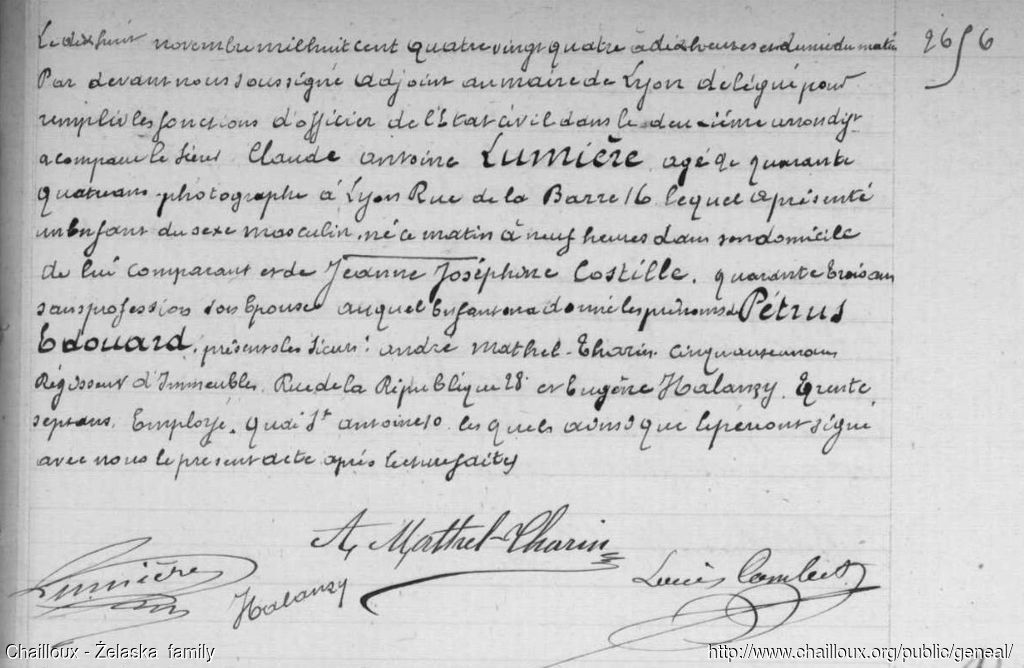 Le dix huit novembre mil huit cent quatre vingt quatre à dix heures et demie du matin
2656
Par devant nous soussigné adjoint au maire de Lyon délégué pour
remplir les fonctions d'officier de l'Etat civil dans le deuxième arrondist
a comparu le sieur Claude Antoine Lumière agé de quarante
quatre ans photographe à Lyon Rue de la Barre 16 lequel a présenté
un Enfant du sexe masculin, né ce matin à neuf heures dans son domicile
de lui comparant et de Jeanne Joséphine Costille, quarante trois ans
sans profession son Epouse auquel Enfant on a donné les prénoms de Pétrus
Edouard, présents les sieurs : André Mathel-Tharin, cinquante un ans
Régisseur d'Immeubles, Rue de la République 28 et Eugène Halanzy, Trente
sept ans, Employé, quai St Antoine 10 les quels ainsi que le père ont signé
avec nous le présent acte après lecture faite
A. Mathel-Tharin
Lumière
Halanzy
Louis
Chailloux - Żelaska family
http://www.chailloux.org/public/geneal/